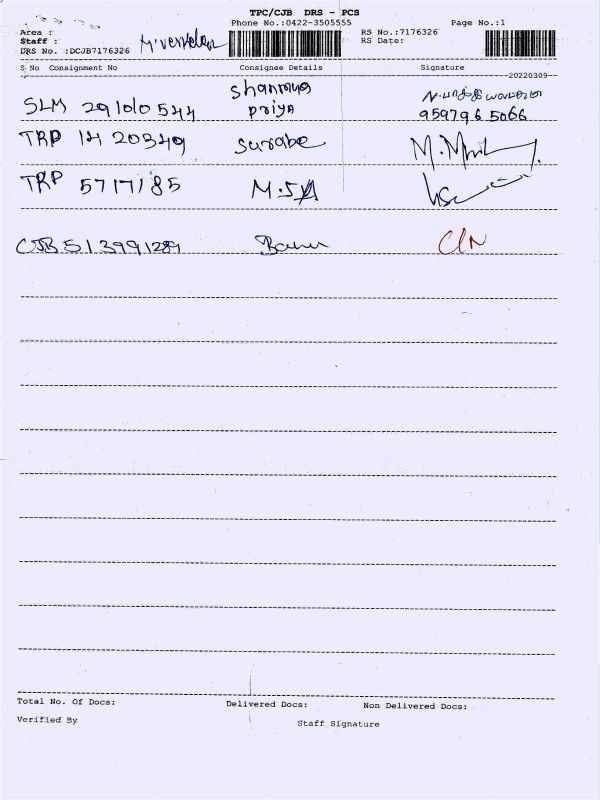 TPC/CJB DRS - PCS
Phone No.:0422-3505555
Page No.:1
Area :
Staff :
RS No.:7176326
DRS No. :DCJB7176326
RS Date:
S No Consignment No Consignee Details Signature
20220309
SLM 29100544 Shanmuga
priya
9597965066
TRP 14 20349 Surabe
TRP 5717185
CJB 513991289
Total No. Of Docs: Delivered Docs: Non Delivered Docs:
Verified By
Staff Signature